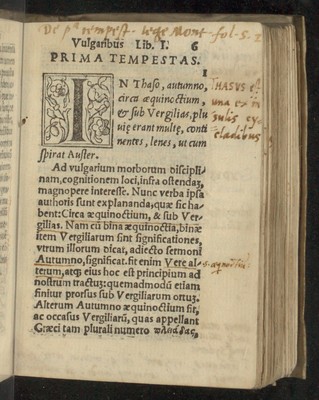 De pª tempest. lege Mont fol. S. I
Vulgaribus Lib. I. 6
PRIMA TEMPESTAS.
I
IN Thaso, autumno,
circa æquinoctium,
& sub Vergilias, plu
uię erant multę, conti
nentes, lenes, ut cum
spirat Auster.
THASUS est
una ex in
sulis cy
cladibus
Ad vulgarium morborum discipli-
nam, cognitionem loci, infra ostendā,
magnopere interesse. Nunc verba ipsa
authoris sunt explananda, quæ sic ha-
bent: Circa æquinoctium, & sub Ver-
gilias. Nam cū bina æquinoctia, binæ
item Vergiliarum sint significationes,
vtrum illorum dicat, adiecto sermoni
Autumno, significat. sit enim Vere al-
terum, atq; eius hoc est principium ad
nostrum tractū: quemadmodū etiam
finitur prorsus sub Vergiliarum ortuȝ.
Alterum Autumno æquinoctium fit,
ac occasus Vergiliarū, quas appellant
Græci tam plurali numero πλειάδας,